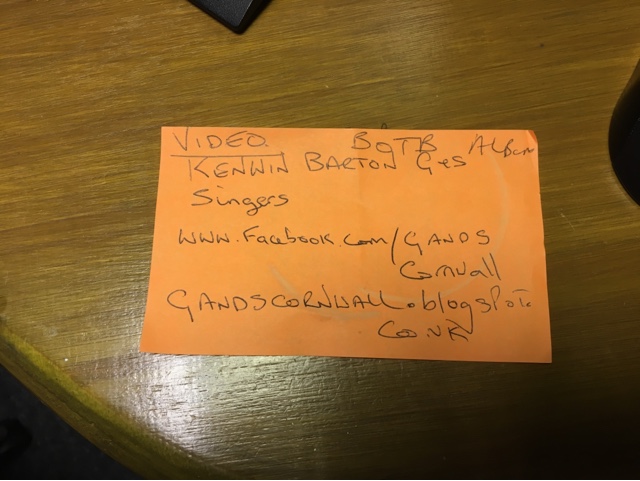 VIDEO BOTB ALBUM
KENWIN BARTON G&S
Singers
www.Facebook.com/GANDS
Cornwall
GANDSCORNWALL.blogspot.
Co.UK